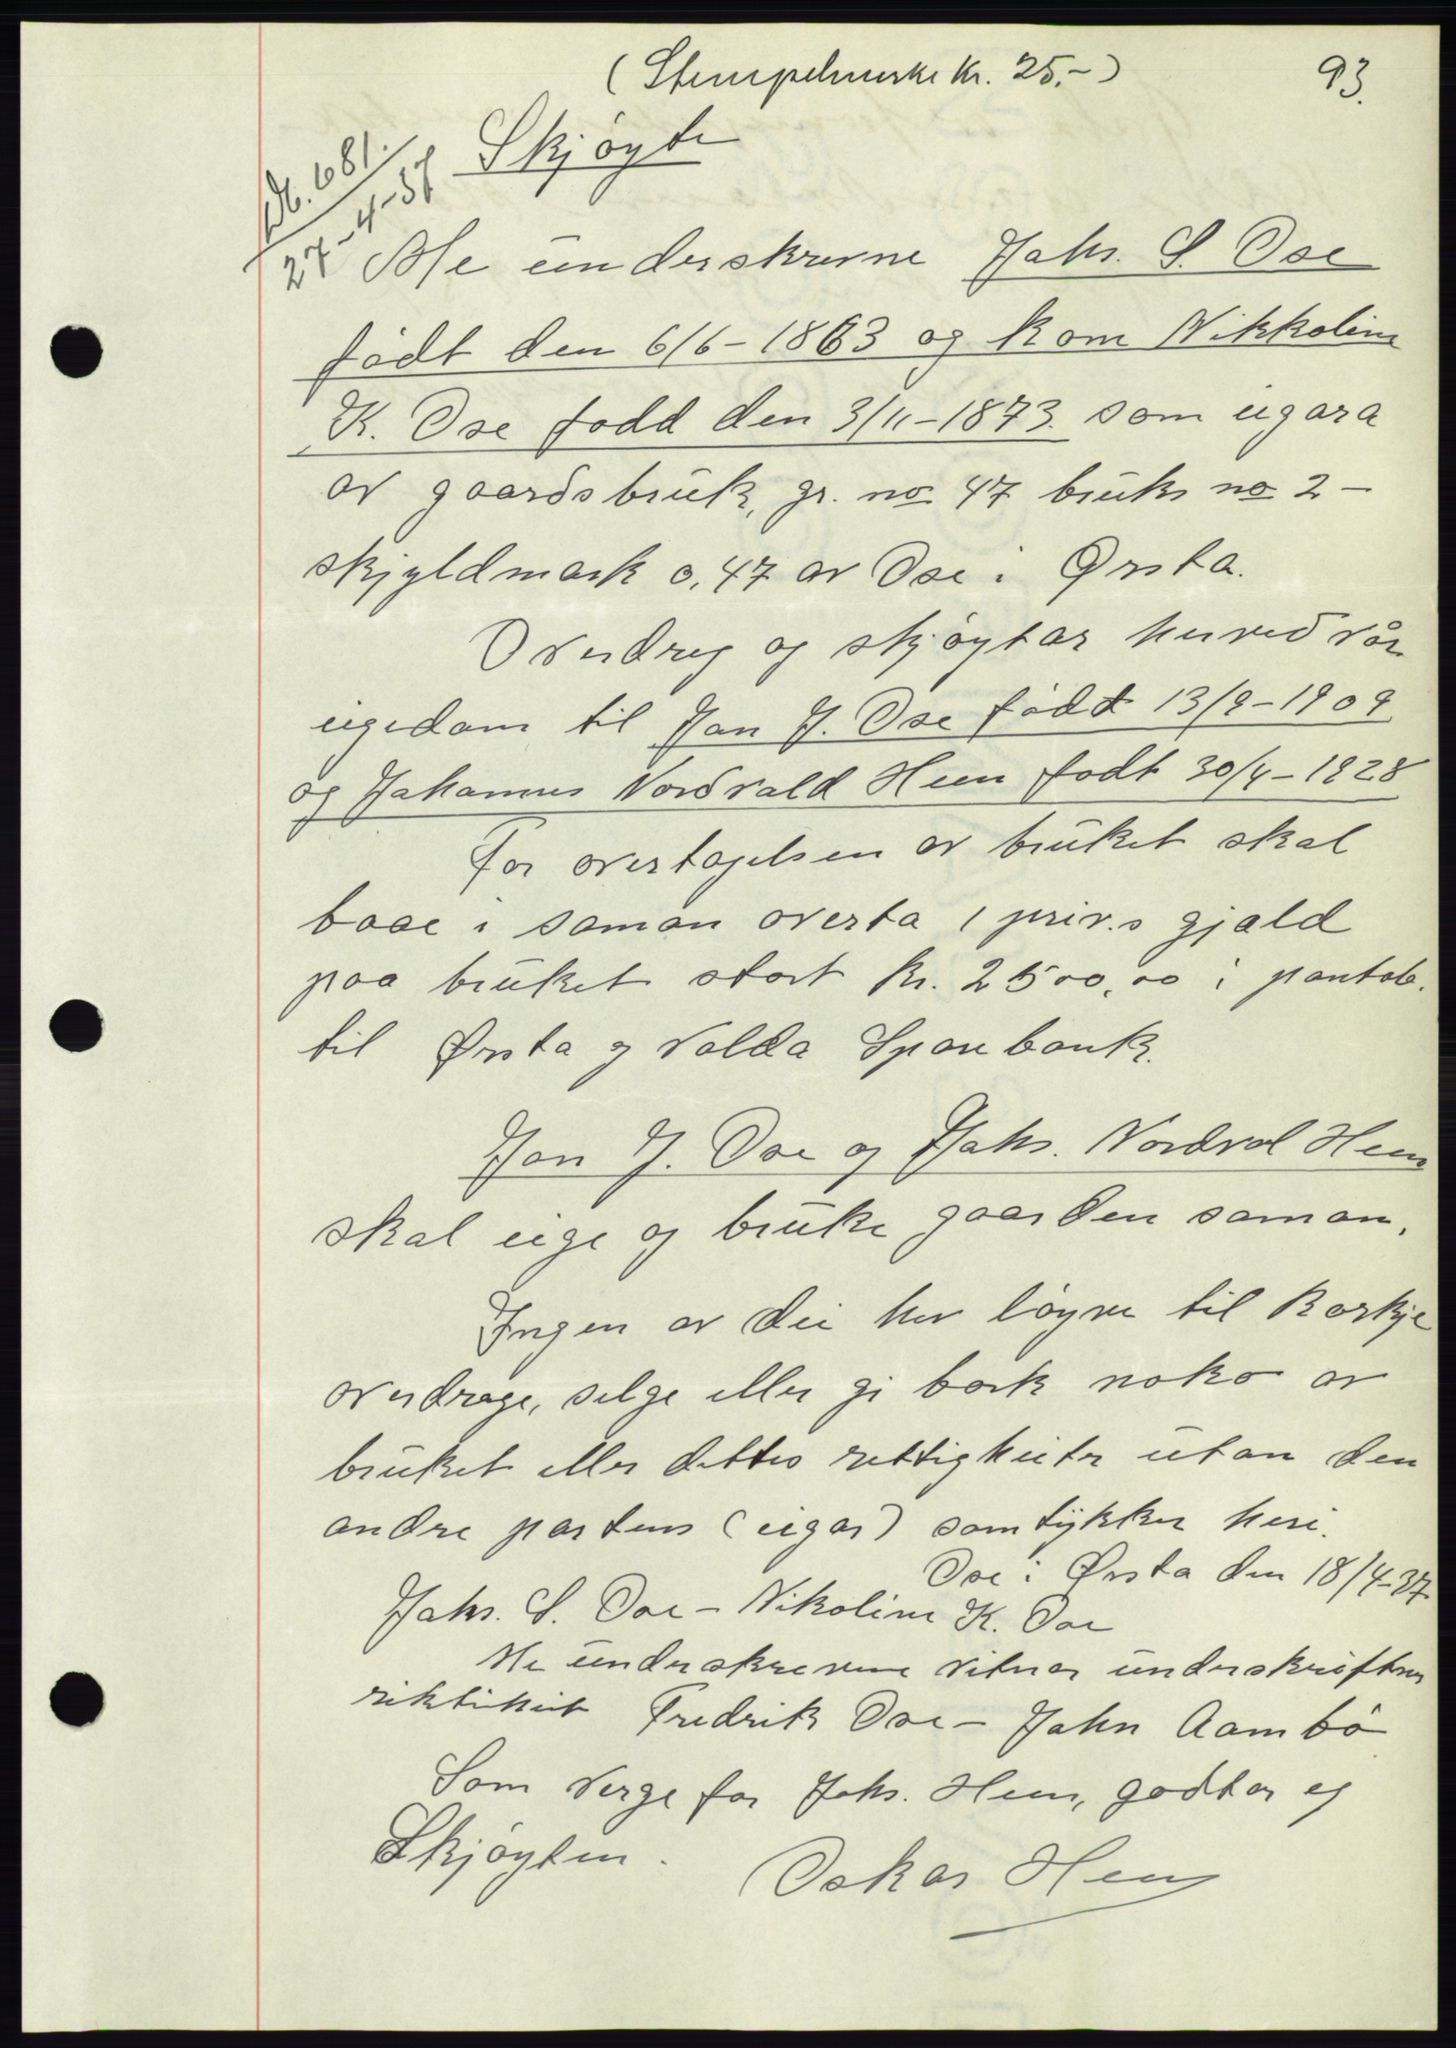 (Stempelmerke kr. 25.-)
93.
Skjøyte
Nr. 681.
27-4-37
Me underskrevne Johs. S. Ose
født den 6/6-1863 og kone Nikkoline
K. Ose fødd den 3/11-1873. som eigara
av gaardsbruk, gr. no 47 bruks no 2 -
skjyldmark 0,47 av Ose i Ørsta.
Overdreg og skjøytar herved vår
eigedom til Jon J. Ose født 13/9-1909
og Johannes Nordvald Heen født 30/4-1928
For overtagelsen av bruket skal
baae i saman overta 1 priv.s gjæld
paa bruket stort kr. 2500,00 i pantob.
til Ørsta og Volda Sparebank.
Jon J. Ose og Johs. Nordvol Heen
skal eige og bruke gaarden saman.
Ingen av dei her løyve til korkje
overdrage, selge eller gi bork noko av
bruket eller dettes rettigheiter utan den
andre partens (eigar) samtykker heri.
Ose i Ørsta den 18/4-37
Johs. S. Ose - Nikoline K. Ose
Me underskrevene vitnar underskriften
riktiheit Fredrik Ose - John Aambø
Som verge for Johs. Heen, godtar eg
Skjøyten.
Oskar Heen